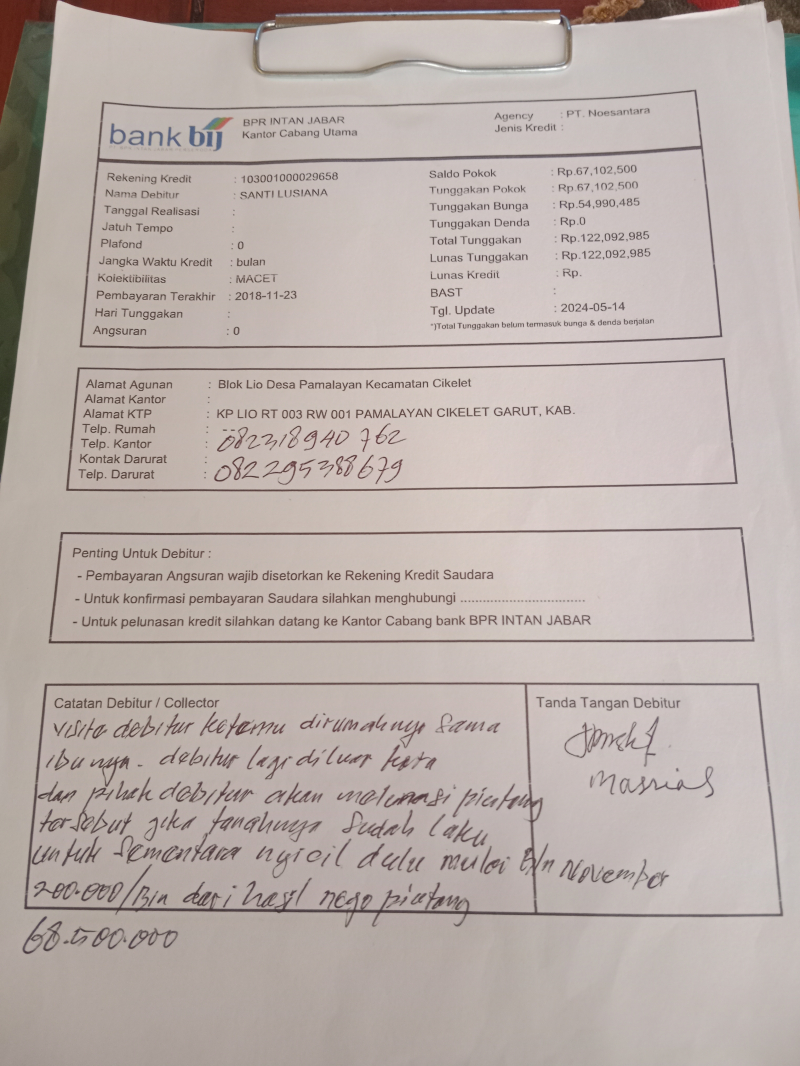 bank bij
BPR INTAN JABAR
Kantor Cabang Utama
Agency : PT. Noesantara
Jenis Kredit :
Rekening Kredit : 103001000029658
Nama Debitur : SANTI LUSIANA
Tanggal Realisasi :
Jatuh Tempo :
Plafond : 0
Jangka Waktu Kredit : bulan
Kolektibilitas : MACET
Pembayaran Terakhir : 2018-11-23
Hari Tunggakan :
Angsuran : 0
Saldo Pokok : Rp.67,102,500
Tunggakan Pokok : Rp.67,102,500
Tunggakan Bunga : Rp.54,990,485
Tunggakan Denda : Rp.0
Total Tunggakan : Rp.122,092,985
Lunas Tunggakan : Rp.122,092,985
Lunas Kredit : Rp.
BAST :
Tgl. Update : 2024-05-14
*)Total Tunggakan belum termasuk bunga & denda berjalan
Alamat Agunan : Blok Lio Desa Pamalayan Kecamatan Cikelet
Alamat Kantor :
Alamat KTP : KP LIO RT 003 RW 001 PAMALAYAN CIKELET GARUT, KAB.
Telp. Rumah : --
Telp. Kantor : 082318940762
Kontak Darurat :
Telp. Darurat : 082295388679
Penting Untuk Debitur :
- Pembayaran Angsuran wajib disetorkan ke Rekening Kredit Saudara
- Untuk konfirmasi pembayaran Saudara silahkan menghubungi ..................................
- Untuk pelunasan kredit silahkan datang ke Kantor Cabang bank BPR INTAN JABAR
Catatan Debitur / Collector
visite debitur ketemu dirumahnya sama
ibunya. debitur lagi diluar kota
dan pihak debitur akan melunasi piutang
tersebut jika tanahnya sudah laku
untuk sementara nyicil dulu mulai Bln November
200.000/Bln dari hasil nego piutang
68.500.000
Tanda Tangan Debitur